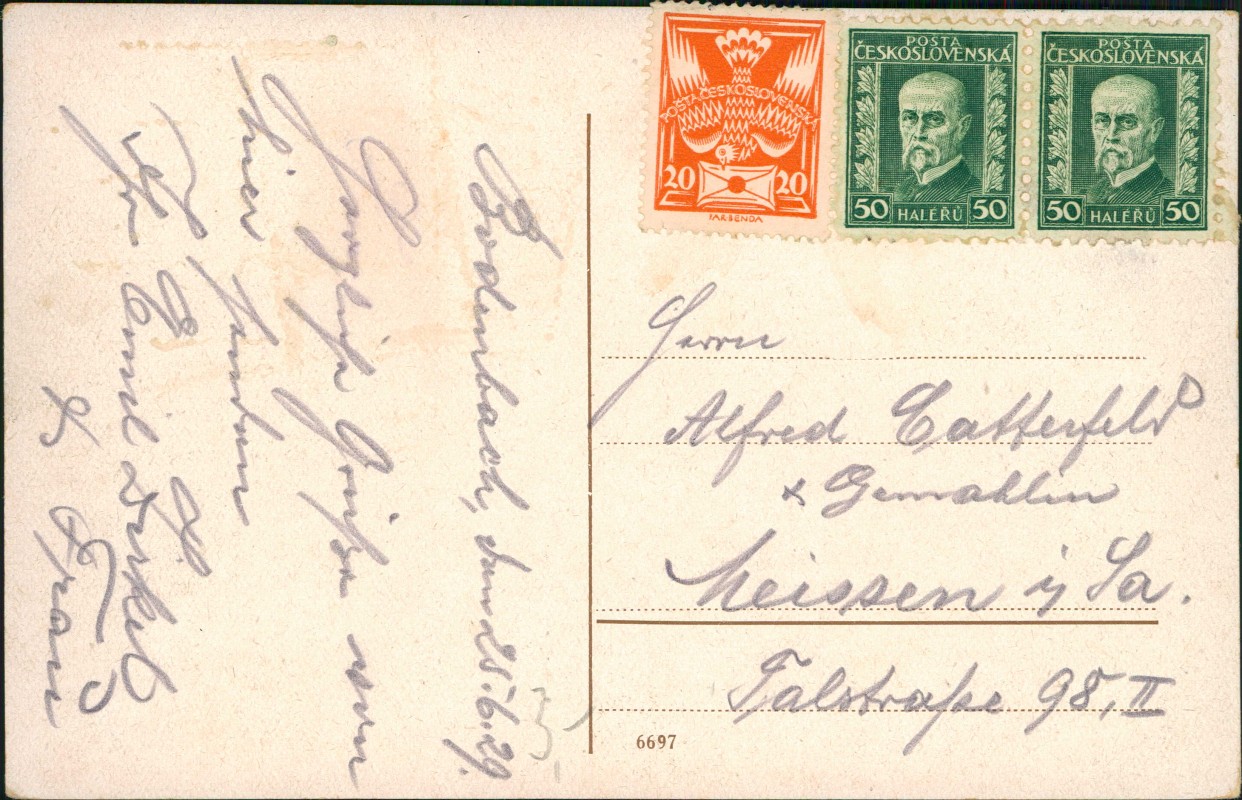 POŠTA ČESKOSLOVENSKÁ
20 20
FAR. BENDA
POŠTA
ČESKOSLOVENSKÁ
50 HALÉŘŮ 50
POŠTA
ČESKOSLOVENSKÁ
50 HALÉŘŮ 50
Bodenbach, den 25.6.29.
Herzliche Grüße von
hier senden
Ihr Emil
& Frau
Herrn
Alfred Catterfeld
& Gemahlin
Meissen i/ Sa.
Talstraße 98, II
6697